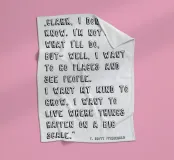 "CLARK, I DON'T
KNOW. I'M NOT
WHAT I'LL DO,
BUT- WELL, I WANT
TO GO PLACES AND
SEE PEOPLE.
I WANT MY MIND TO
GROW. I WANT TO
LIVE WHERE THINGS
HAPPEN ON A BIG
SCALE."
F. SCOTT FITZGERALD